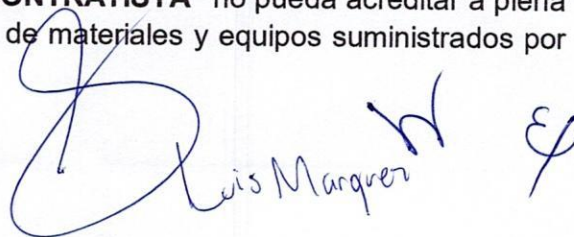 ONTRATISTA" no pueda acreditar a plena
de materiales y equipos suministrados por
Luis Marquez